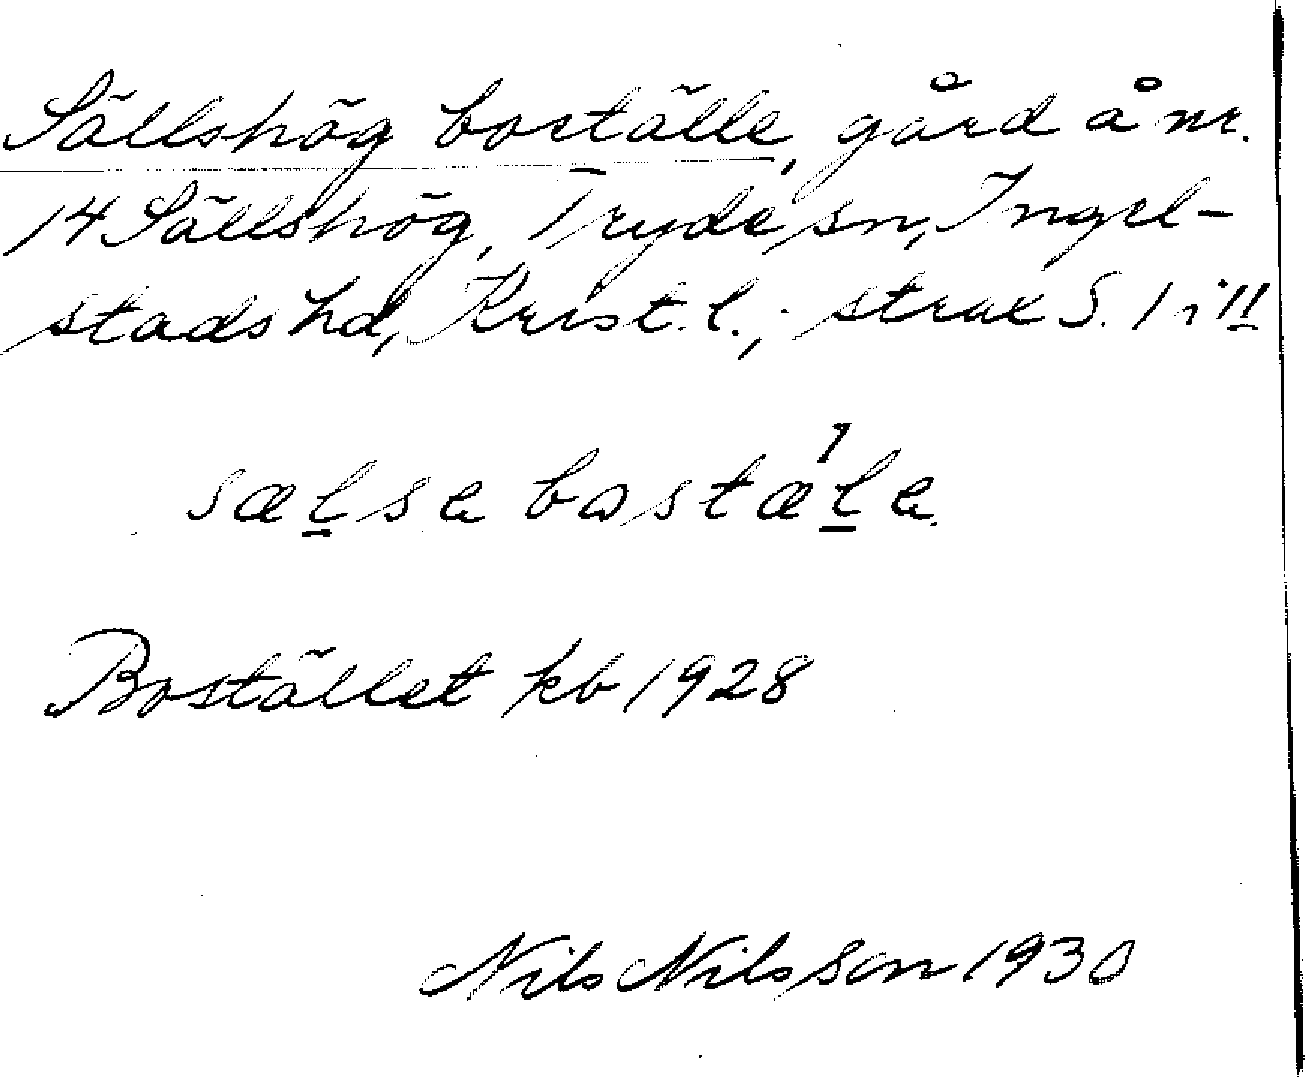 Sällshög boställe, gård å nr.
14 Sällshög, Tryde sn, Ingel-
stads hd, Krist. l.; strax S. 1 i 11
sælsa bostæ´la
Bostället kb 1928
Nils Nilsson 1930